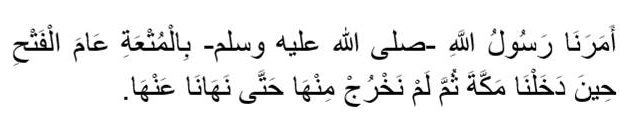 أَمَرَنَا رَسُولُ اللَّهِ -صلى الله عليه وسلم- بِالْمُتْعَةِ عَامَ الْفَتْحِ
حِينَ دَخَلْنَا مَكَّةَ ثُمَّ لَمْ نَخْرُجْ مِنْهَا حَتَّى نَهَانَا عَنْهَا.